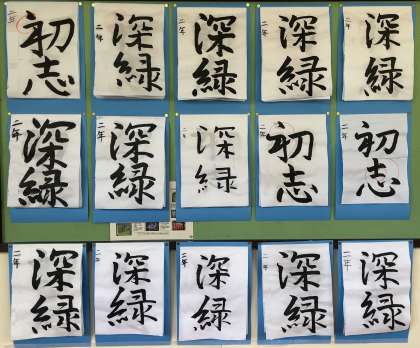 初志
二年
深緑
二年
深緑
二年
深緑
二年
深緑
二年
深緑
二年
深緑
二年
深緑
二年
初志
二年
初志
二年
深緑
二年
深緑
二年
深緑
二年
深緑
二年
深緑
二年